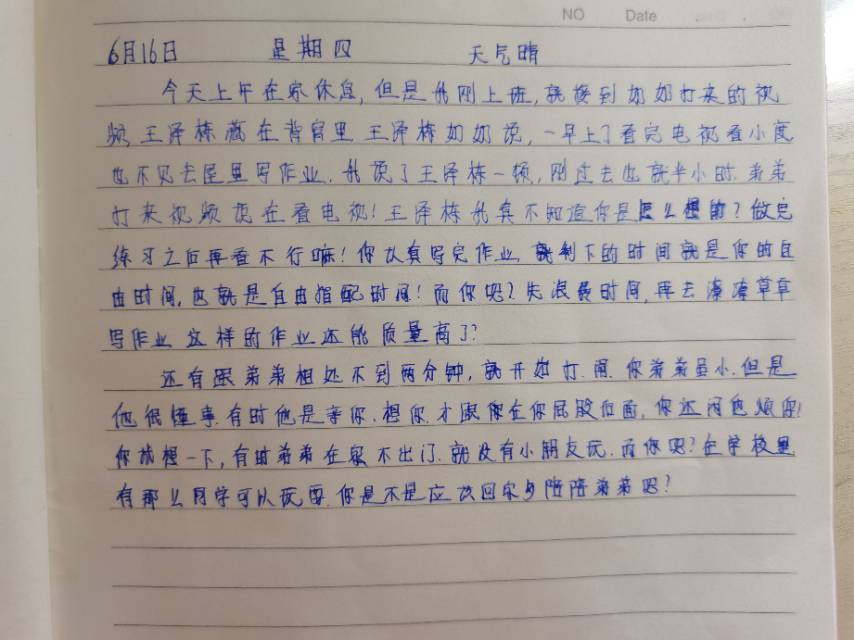 NO Date
6月16日 星期四 天气晴
今天上午在家休息,但是我刚上班,就接到奶奶打来的视
频,王泽栋藏在背后里 王泽栋奶奶说,一早上了看完电视看小度
也不见去屋里写作业.我说了王泽栋一顿,刚过去也就半小时.弟弟
打来视频说在看电视!王泽栋我真不知道你是怎么想的?做完
练习之后再看不行嘛!你认真写完作业,就剩下的时间就是你的自
由时间,也就是自由指配时间!而你呢?先浪费时间,再去潦潦草草
写作业 这样的作业还能质量高了?
还有跟弟弟相处不到两分钟,就开始打.闹.你弟弟虽小.但是
他很懂事.有时他是亲你.想你.才跟你在你屁股后面,你还闲他烦你!
你试想一下,有时弟弟在家不出门.就没有小朋友玩.而你呢?在学校里
有那么同学可以玩耍.你是不是应该回家多陪陪弟弟呢?